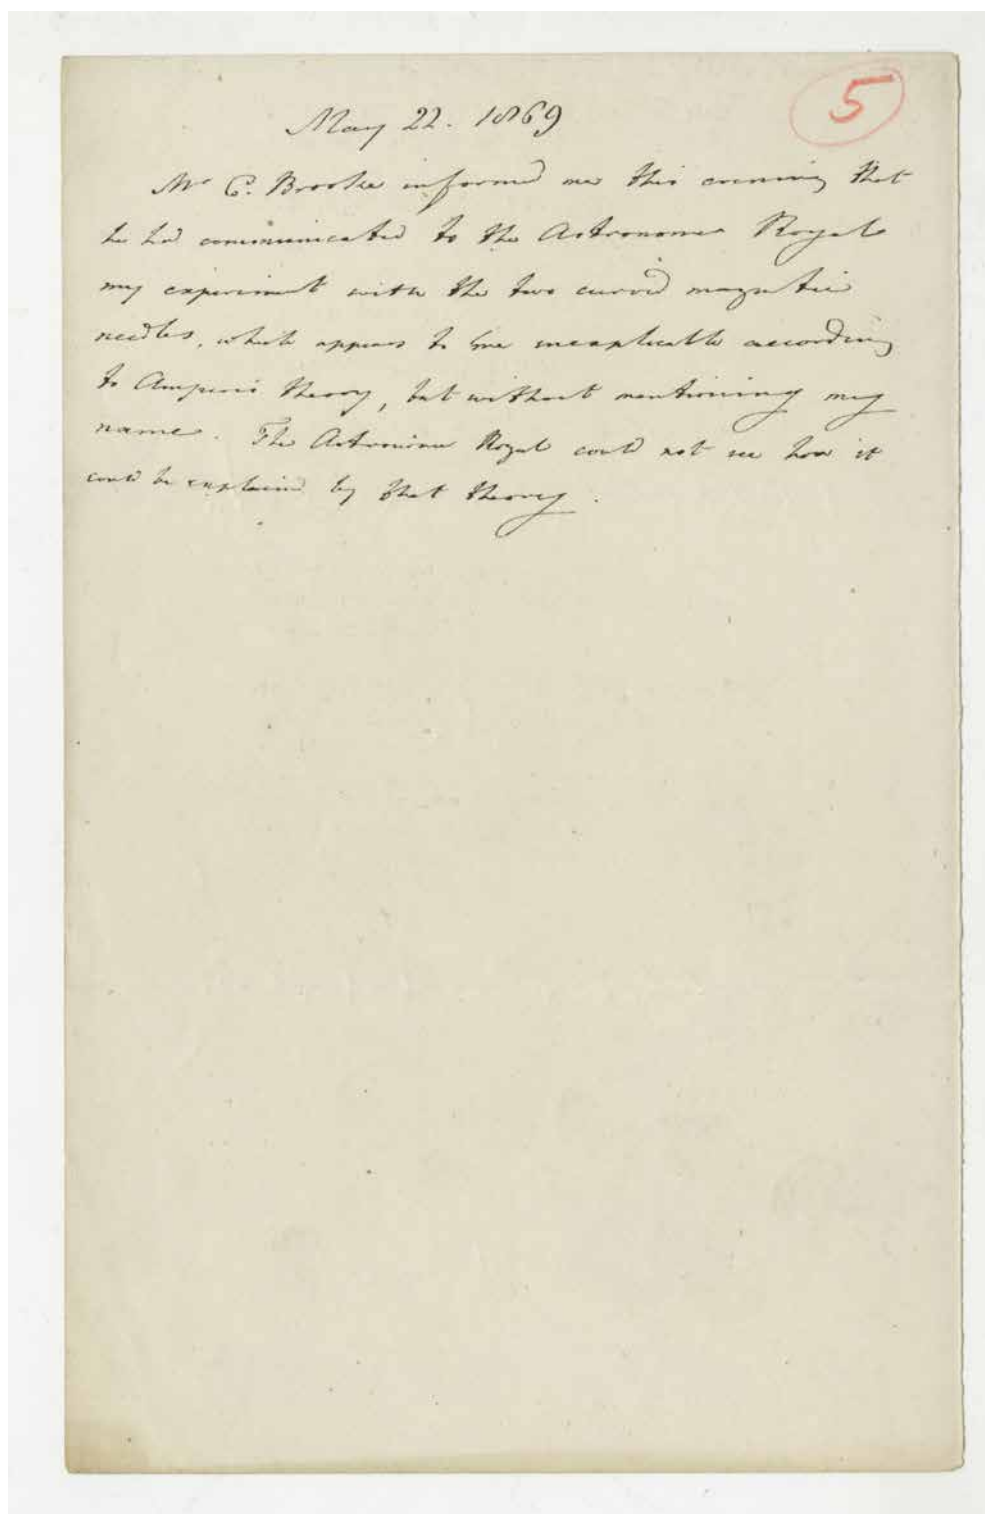 5
May 22. 1869
Mr C. Brooke informed me this evening that
he had communicated to the Astronomer Royal
my experiment with the two curved magnetic
needles, which appears to me inexplicable according
to Ampere's theory, but without mentioning my
name. The Astronomer Royal could not see how it
could be explained by that theory.